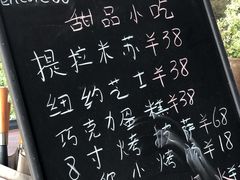 甜品小吃
提拉米苏¥38
纽约芝士¥38
巧克力蛋糕¥38
8寸烤 萨¥68
小烤 ¥18